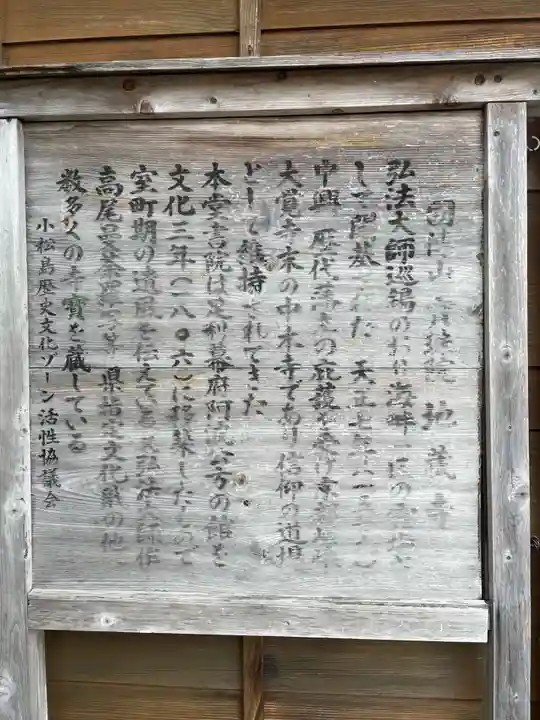 地蔵寺
弘法大師巡錫のおり海畔一
して開基された 天正七年
中興 歴代藩主の庇護を受け京都
大覚寺末の中本寺であり信仰の道場
として維持されてきた
本堂書院は足利幕府阿波公方の館を
文化三年(一八〇六)に移築したもので
室町期の遺風を伝えている 弘法大師作
高尾 県指定文化財の他
数多くの寺寶を蔵している
小松島歴史文化ゾーン活性協議会